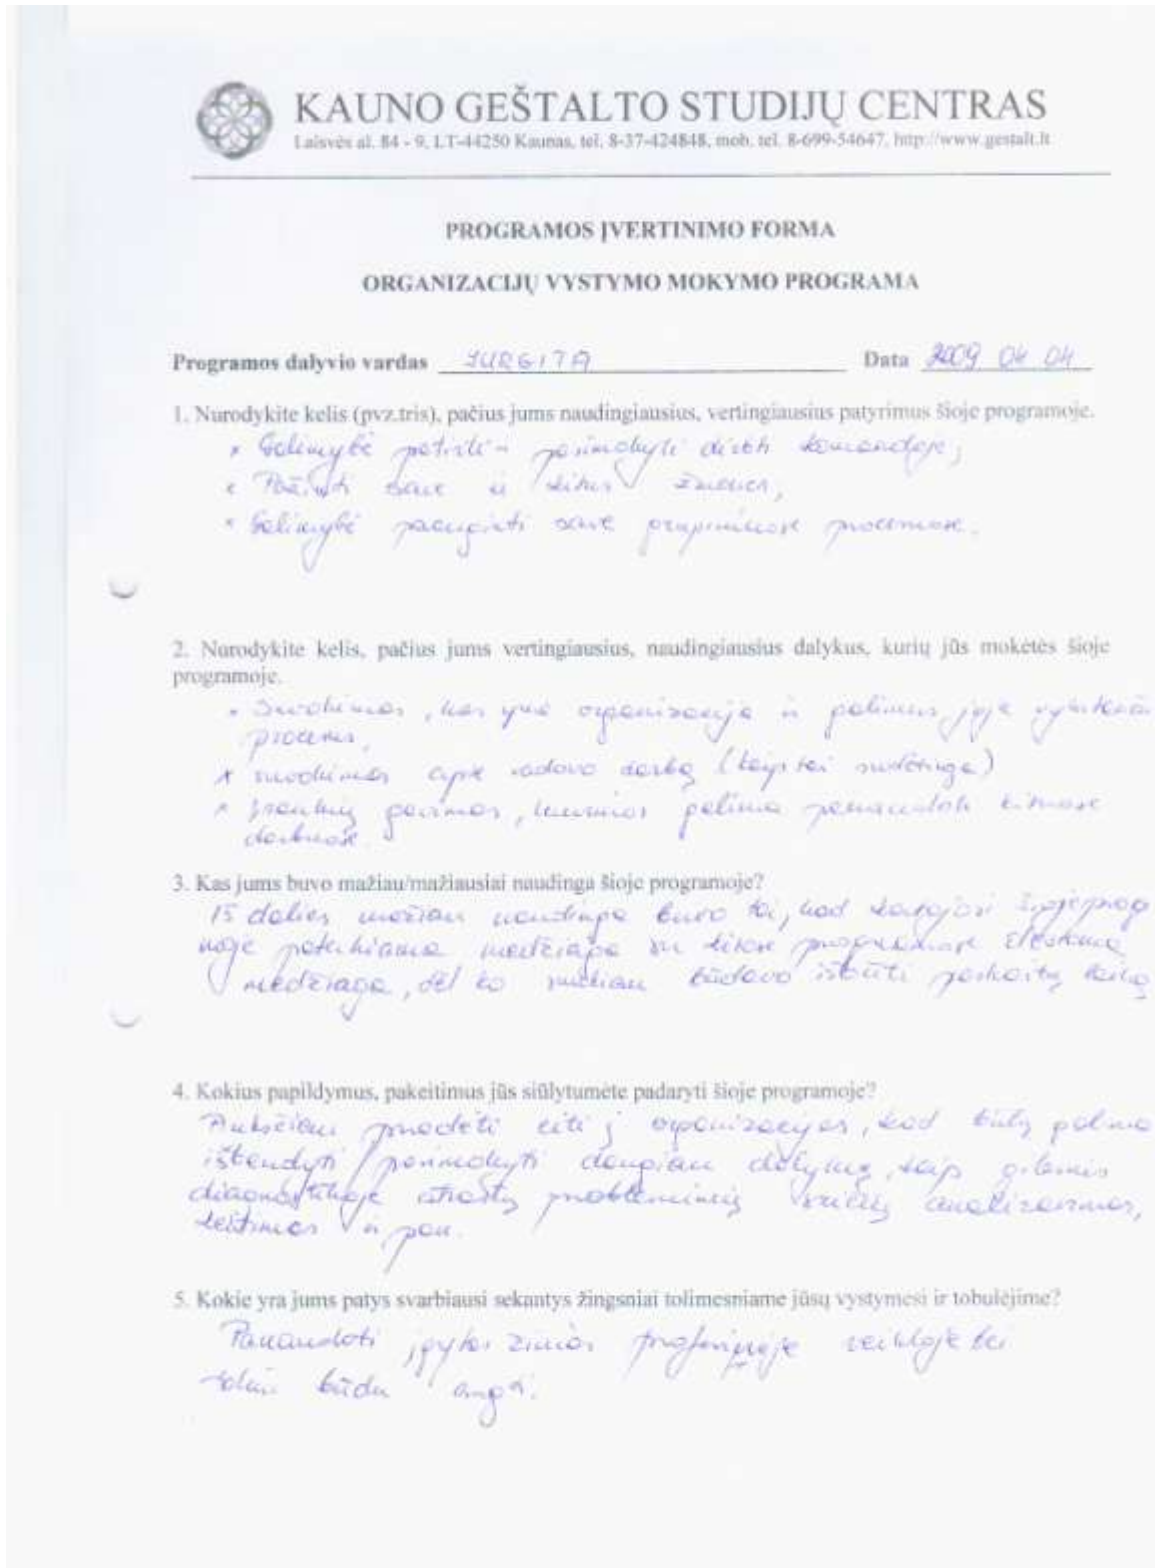 KAUNO GEŠTALTO STUDIJŲ CENTRAS
Laisvės al. 84 - 9, LT-44250 Kaunas, tel. 8-37-424848, mob. tel. 8-699-54647, http://www.gestalt.lt
PROGRAMOS ĮVERTINIMO FORMA
ORGANIZACIJŲ VYSTYMO MOKYMO PROGRAMA
Programos dalyvio vardas JURGITA Data 2009 04 04
1. Nurodykite kelis (pvz.tris), pačius jums naudingiausius, vertingiausius patyrimus šioje programoje.
Galimybė patirti pasimokyti dirbti komandoje;
Pažinti save ir kitus žmones,
Galimybė paauginti save grupiniuose procesuose.
2. Nurodykite kelis, pačius jums vertingiausius, naudingiausius dalykus, kurių jūs mokėtės šioje
programoje.
Suvokimas, kas yra organizacija ir galimus joje
procesus,
suvokimas apie vadovo darbą (kaip tai sudėtinga)
įrankių gavimas, kuriuos galima panaudoti kituose
darbuose.
3. Kas jums buvo mažiau/mažiausiai naudinga šioje programoje?
Iš dalies mažiau naudinga buvo tai, kad kartojosi šioje prog
moje pateikiama medžiaga su kitose programose
medžiaga, dėl ko sunkiau būdavo išbūti paskaitų laiką
4. Kokius papildymus, pakeitimus jūs siūlytumėte padaryti šioje programoje?
Anksčiau pradėti eiti į organizacijas, kad būtų galima
išbandyti / pasimokyti daugiau dalykų, kaip gilesnis
diagnostikoje atrastų probleminių sričių analizavimas,
keitimas ir pan.
5. Kokie yra jums patys svarbiausi sekantys žingsniai tolimesniame jūsų vystymesi ir tobulėjime?
Panaudoti įgytas žinias profesinėje veikloje bei
tokiu būdu augti.